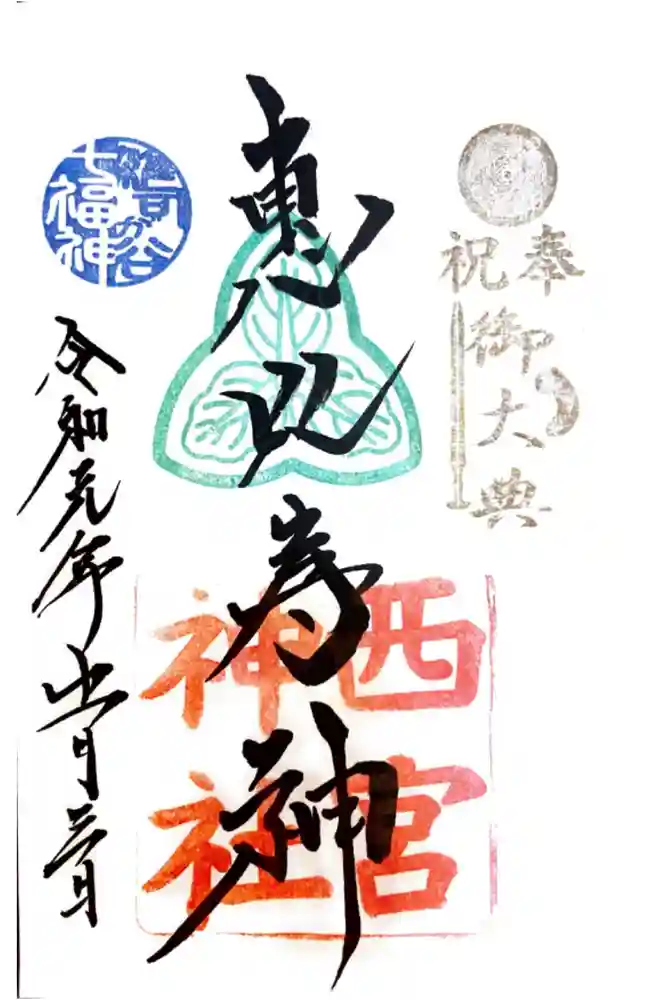 奉祝
御大典
恵比寿神
西宮
神社
七福神
令和元年十一月三日